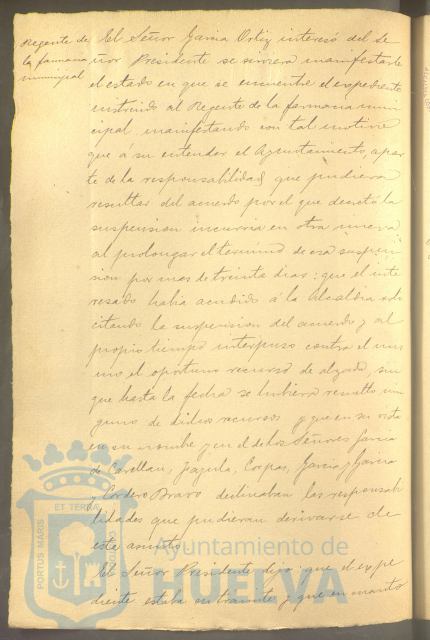 Regente de
la farmacia
municipal
El Señor Garcia Ortiz interesó del Se
ñor Presidente se sirviera manifestarle
el estado en que se encuentre el expediente
instruido al Regente de la farmacia muni
cipal, manifestando con tal motivo
que á su entender el Ayuntamiento, apar
te de la responsabilidad que pudiera
resultar del acuerdo por el que decretó la
suspension incurria en otra nueva
al prolongar el termino de esa suspen
sion por mas de treinta dias: que el inte
resado habia acudido á la Alcaldia soli
citando la suspension del acuerdo y al
propio tiempo interpuso contra el mis
mo el oportuno recurso de alzada, sin
que hasta la fecha se hubiera resuelto nin
guno de dichos recursos y que en su vista
en su nombre y en el de los Señores Garcia
de Carellan, Jazula, Corpas, Garcia y Garcia
y Cordero Bravo declinaban las responsabi
lidades que pudieran derivarse de
este asunto.
El Señor Presidente dijo: que el expe
diente estaba en trámite y que en cuanto
PORTUS MARIS
ET TERRAE
Ayuntamiento de
HUELVA